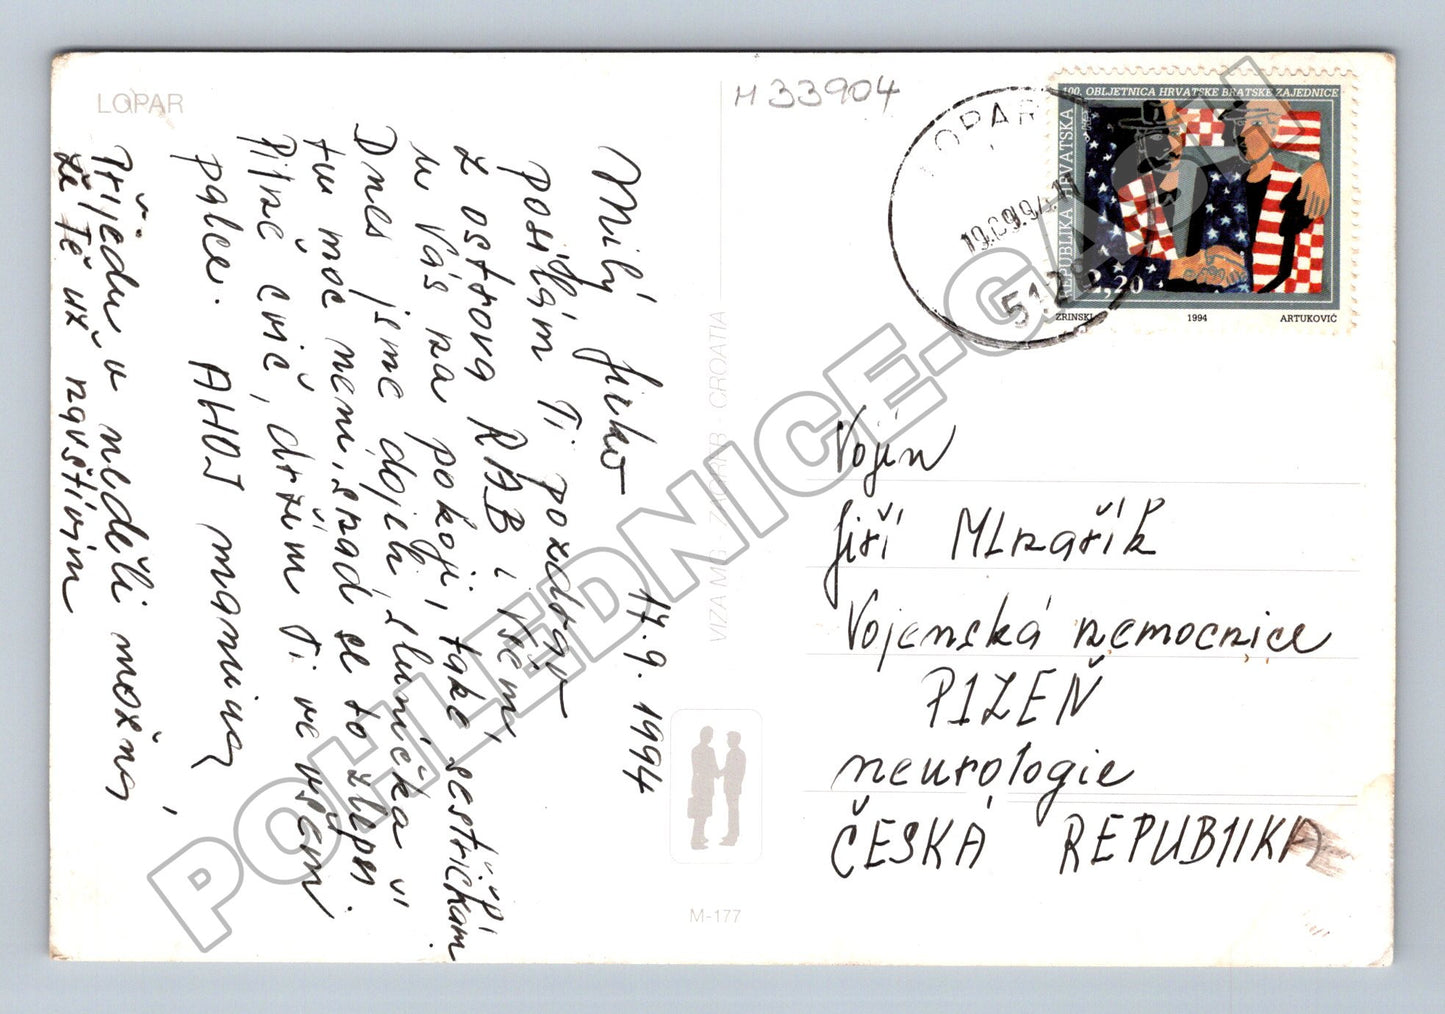 LOPAR
H 33904
100. OBLJETNICA HRVATSKE BRATSKE ZAJEDNICE
REPUBLIKA HRVATSKA
2,20
ZRINSKI 1994 ARTUKOVIĆ
LOPAR
19.09.94.
512
17.9.1994
Milý Jirko
posílám Ti pozdrav
z ostrova RAB i všem
u Vás na pokoji, take sestřičkám
Dnes jsme dojeli, sluníčka
tu moc není, snad se to zlepší.
Piš, držím ti ve všem
palce. AHOJ maminka
Přijedu v neděli možná,
že Tě už navštívím
VIZA MG - ZAGREB - CROATIA
M-177
Vojín
Jiří Mlnařík
Vojenská nemocnice
PLZEŇ
neurologie
ČESKÁ REPUBLIKA
POHLEDNICE-GASH